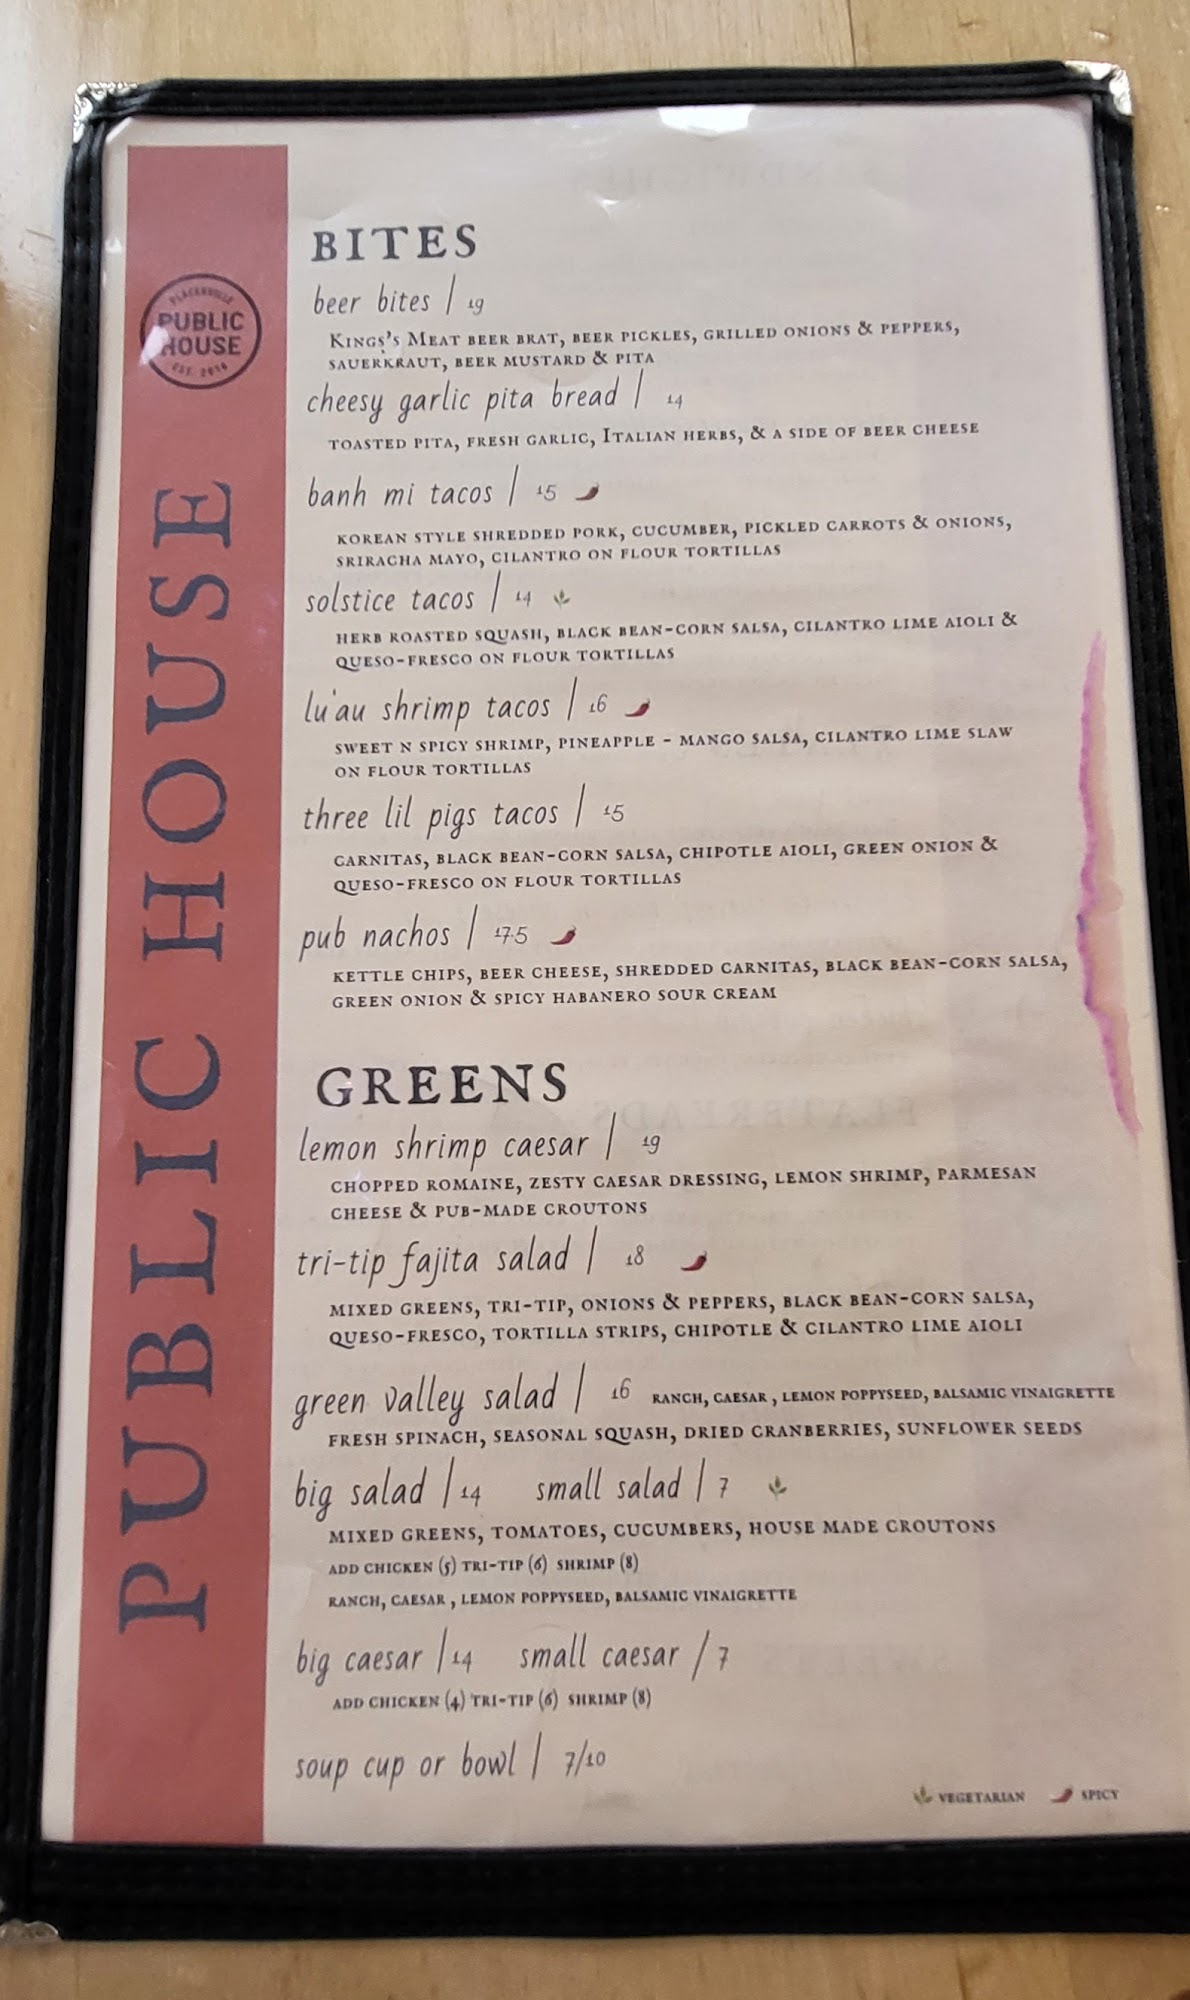 PLACERVILLE
PUBLIC
HOUSE
EST. 2016
PUBLIC HOUSE
BITES
beer bites | 19
KINGS'S MEAT BEER BRAT, BEER PICKLES, GRILLED ONIONS & PEPPERS,
SAUERKRAUT, BEER MUSTARD & PITA
cheesy garlic pita bread | 14
TOASTED PITA, FRESH GARLIC, ITALIAN HERBS, & A SIDE OF BEER CHEESE
banh mi tacos | 15
KOREAN STYLE SHREDDED PORK, CUCUMBER, PICKLED CARROTS & ONIONS,
SRIRACHA MAYO, CILANTRO ON FLOUR TORTILLAS
solstice tacos | 14
HERB ROASTED SQUASH, BLACK BEAN-CORN SALSA, CILANTRO LIME AIOLI &
QUESO-FRESCO ON FLOUR TORTILLAS
lu'au shrimp tacos | 16
SWEET N SPICY SHRIMP, PINEAPPLE - MANGO SALSA, CILANTRO LIME SLAW
ON FLOUR TORTILLAS
three lil pigs tacos | 15
CARNITAS, BLACK BEAN-CORN SALSA, CHIPOTLE AIOLI, GREEN ONION &
QUESO-FRESCO ON FLOUR TORTILLAS
pub nachos | 17.5
KETTLE CHIPS, BEER CHEESE, SHREDDED CARNITAS, BLACK BEAN-CORN SALSA,
GREEN ONION & SPICY HABANERO SOUR CREAM
GREENS
lemon shrimp caesar | 19
CHOPPED ROMAINE, ZESTY CAESAR DRESSING, LEMON SHRIMP, PARMESAN
CHEESE & PUB-MADE CROUTONS
tri-tip fajita salad | 18
MIXED GREENS, TRI-TIP, ONIONS & PEPPERS, BLACK BEAN-CORN SALSA,
QUESO-FRESCO, TORTILLA STRIPS, CHIPOTLE & CILANTRO LIME AIOLI
green valley salad | 16 RANCH, CAESAR , LEMON POPPYSEED, BALSAMIC VINAIGRETTE
FRESH SPINACH, SEASONAL SQUASH, DRIED CRANBERRIES, SUNFLOWER SEEDS
big salad | 14 small salad | 7
MIXED GREENS, TOMATOES, CUCUMBERS, HOUSE MADE CROUTONS
ADD CHICKEN (5) TRI-TIP (6) SHRIMP (8)
RANCH, CAESAR , LEMON POPPYSEED, BALSAMIC VINAIGRETTE
big caesar | 14 small caesar / 7
ADD CHICKEN (4) TRI-TIP (6) SHRIMP (8)
soup cup or bowl | 7/10
VEGETARIAN SPICY